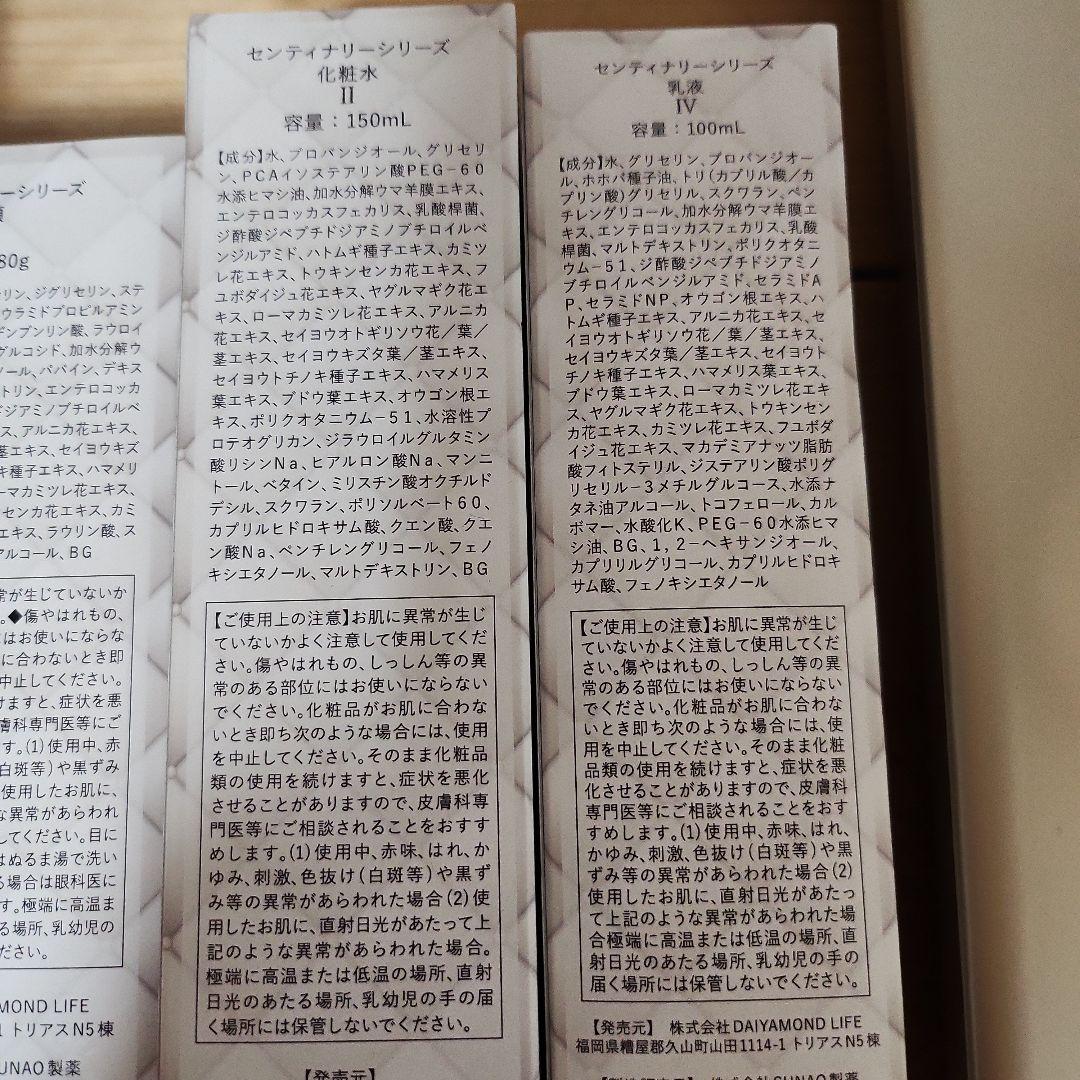 ーシリーズ
80g
リン、ジグリセリン、ステ
ウラミドプロピルアミン
デンプンリン酸、ラウロイ
グルコシド、加水分解ウ
ノール、パパイン、デキス
トリン、エンテロコッカ
ジアミノブチロイルベ
ス、アルニカ花エキス、
茎エキス、セイヨウキズ
キ種子エキス、ハマメリ
ーマカミツレ花エキス、
センカ花エキス、カミ
エキス、ラウリン酸、ス
アルコール、BG
常が生じていないか
。◆傷やはれもの、
はお使いにならな
に合わないとき即
中止してください。
けますと、症状を悪
膚科専門医等にご
す。(1)使用中、赤
白斑等)や黒ずみ
使用したお肌に、
な異常があらわれ
してください。目に
はぬるま湯で洗い
る場合は眼科医に
す。極端に高温ま
る場所、乳幼児の
ださい。
AMOND LIFE
1 トリアスN5棟
SUNAO製薬
センティナリーシリーズ
化粧水
II
容量：150mL
【成分】水、プロパンジオール、グリセリ
ン、PCAイソステアリン酸PEG-60
水添ヒマシ油、加水分解ウマ羊膜エキス、
エンテロコッカスフェカリス、乳酸桿菌、
ジ酢酸ジペプチドジアミノブチロイルベ
ンジルアミド、ハトムギ種子エキス、カミツ
レ花エキス、トウキンセンカ花エキス、フ
ユボダイジュ花エキス、ヤグルマギク花エ
キス、ローマカミツレ花エキス、アルニカ
花エキス、セイヨウオトギリソウ花／葉／
茎エキス、セイヨウキズタ葉／茎エキス、
セイヨウトチノキ種子エキス、ハマメリス
葉エキス、ブドウ葉エキス、オウゴン根エ
キス、ポリクオタニウム-51、水溶性プ
ロテオグリカン、ジラウロイルグルタミン
酸リシンNa、ヒアルロン酸Na、マンニ
トール、ベタイン、ミリスチン酸オクチルド
デシル、スクワラン、ポリソルベート60、
カプリルヒドロキサム酸、クエン酸、クエ
ン酸Na、ペンチレングリコール、フェノ
キシエタノール、マルトデキストリン、BG
【ご使用上の注意】お肌に異常が生じ
ていないかよく注意して使用してくだ
さい。傷やはれもの、しっしん等の異
常のある部位にはお使いにならない
でください。化粧品がお肌に合わな
いとき即ち次のような場合には、使用
を中止してください。そのまま化粧品
類の使用を続けますと、症状を悪化
させることがありますので、皮膚科専
門医等にご相談されることをおすす
めします。(1)使用中、赤味、はれ、か
ゆみ、刺激、色抜け(白斑等)や黒ず
み等の異常があらわれた場合(2)使
用したお肌に、直射日光があたって上
記のような異常があらわれた場合。
極端に高温または低温の場所、直射
日光のあたる場所、乳幼児の手の届
く場所には保管しないでください。
【発売元】
センティナリーシリーズ
乳液
IV
容量：100mL
【成分】水、グリセリン、プロパンジオー
ル、ホホバ種子油、トリ(カプリル酸／カ
プリン酸)グリセリル、スクワラン、ペン
チレングリコール、加水分解ウマ羊膜エ
キス、エンテロコッカスフェカリス、乳酸
桿菌、マルトデキストリン、ポリクオタニ
ウム-51、ジ酢酸ジペプチドジアミノ
ブチロイルベンジルアミド、セラミドA
P、セラミドNP、オウゴン根エキス、ハ
トムギ種子エキス、アルニカ花エキス、セ
イヨウオトギリソウ花／葉／茎エキス、
セイヨウキズタ葉／茎エキス、セイヨウト
チノキ種子エキス、ハマメリス葉エキス、
ブドウ葉エキス、ローマカミツレ花エキ
ス、ヤグルマギク花エキス、トウキンセン
カ花エキス、カミツレ花エキス、フユボダ
イジュ花エキス、マカデミアナッツ脂肪
酸フィトステリル、ジステアリン酸ポリグ
リセリル-3メチルグルコース、水添ナ
タネ油アルコール、トコフェロール、カル
ボマー、水酸化K、PEG-60水添ヒマ
シ油、BG、1，2-ヘキサンジオール、
カプリリルグリコール、カプリルヒドロキ
サム酸、フェノキシエタノール
【ご使用上の注意】お肌に異常が生じ
ていないかよく注意して使用してくだ
さい。傷やはれもの、しっしん等の異
常のある部位にはお使いにならない
でください。化粧品がお肌に合わな
いとき即ち次のような場合には、使
用を中止してください。そのまま化粧
品類の使用を続けますと、症状を悪
化させることがありますので、皮膚科
専門医等にご相談されることをおす
すめします。(1)使用中、赤味、はれ、
かゆみ、刺激、色抜け(白斑等)や黒
ずみ等の異常があらわれた場合(2)
使用したお肌に、直射日光があたっ
て上記のような異常があらわれた場
合極端に高温または低温の場所、直
射日光のあたる場所、乳幼児の手の
届く場所には保管しないでください。
【発売元】 株式会社DAIYAMOND LIFE
福岡県糟屋郡久山町山田1114-1 トリアスN5棟
株式会社SUNAO製薬